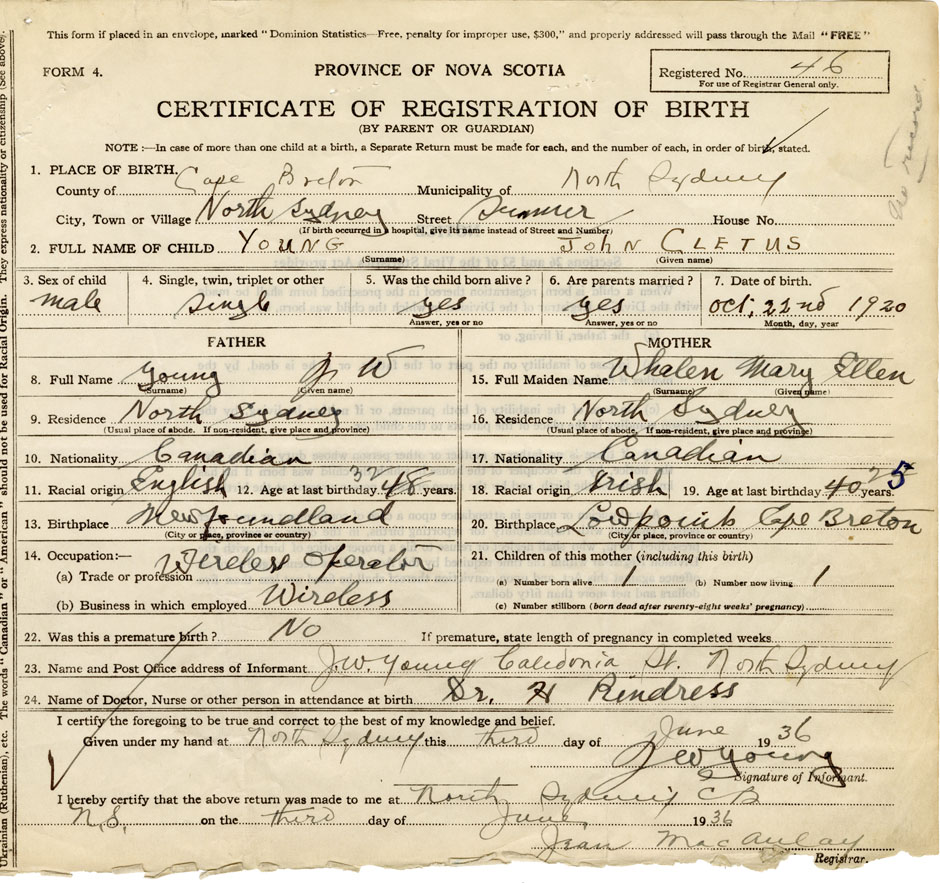 This form if placed in an envelope, marked "Dominion Statistics—Free, penalty for improper use, $300," and properly addressed will pass through the Mail "FREE"
FORM 4.
PROVINCE OF NOVA SCOTIA
Registered No. 46
For use of Registrar General only.
CERTIFICATE OF REGISTRATION OF BIRTH
(BY PARENT OR GUARDIAN)
NOTE :—In case of more than one child at a birth, a Separate Return must be made for each, and the number of each, in order of birth, stated.
1. PLACE OF BIRTH.
County of Cape Breton Municipality of North Sydney
City, Town or Village North Sydney Street House No.
(If birth occurred in hospital, give its name instead of Street and Number)
2. FULL NAME OF CHILD YOUNG JOHN CLETUS
(Surname) (Given name)
3. Sex of child 4. Single, twin, triplet or other 5. Was the child born alive? 6. Are parents married? 7. Date of birth.
male single yes yes Oct. 22nd 1920
Answer, yes or no Answer, yes or no Month, day, year
FATHER MOTHER
8. Full Name Young J W 15. Full Maiden Name Whalen Mary Ellen
(Surname) (Given name) (Surname) (Given name)
9. Residence North Sydney 16. Residence North Sydney
(Usual place of abode. If non-resident, give place and province) (Usual place of abode. If non-resident, give place and province)
10. Nationality Canadian 17. Nationality Canadian
11. Racial origin English 12. Age at last birthday 32 48 years. 18. Racial origin Irish 19. Age at last birthday 40 25 years.
13. Birthplace Newfoundland 20. Birthplace Lowpoint Cape Breton
(City or place, province or country) (City or place, province or country)
14. Occupation:— 21. Children of this mother (including this birth)
(a) Trade or profession Wireless Operator (a) Number born alive 1 (b) Number now living 1
(b) Business in which employed Wireless (c) Number stillborn (born dead after twenty-eight weeks' pregnancy)
22. Was this a premature birth? No If premature, state length of pregnancy in completed weeks
23. Name and Post Office address of Informant J.W. Young Caledonia St. North Sydney
24. Name of Doctor, Nurse or other person in attendance at birth Dr. H Rindress
I certify the foregoing to be true and correct to the best of my knowledge and belief.
Given under my hand at North Sydney this third day of June 1936
J W Young
Signature of Informant.
I hereby certify that the above return was made to me at North Sydney C B
N.S. on the third day of June 1936
Jean MacAulay
Registrar.
Ukrainian (Ruthenian), etc. The words "Canadian" or "American" should not be used for Racial Origin. They express nationality or citizenship (See above).